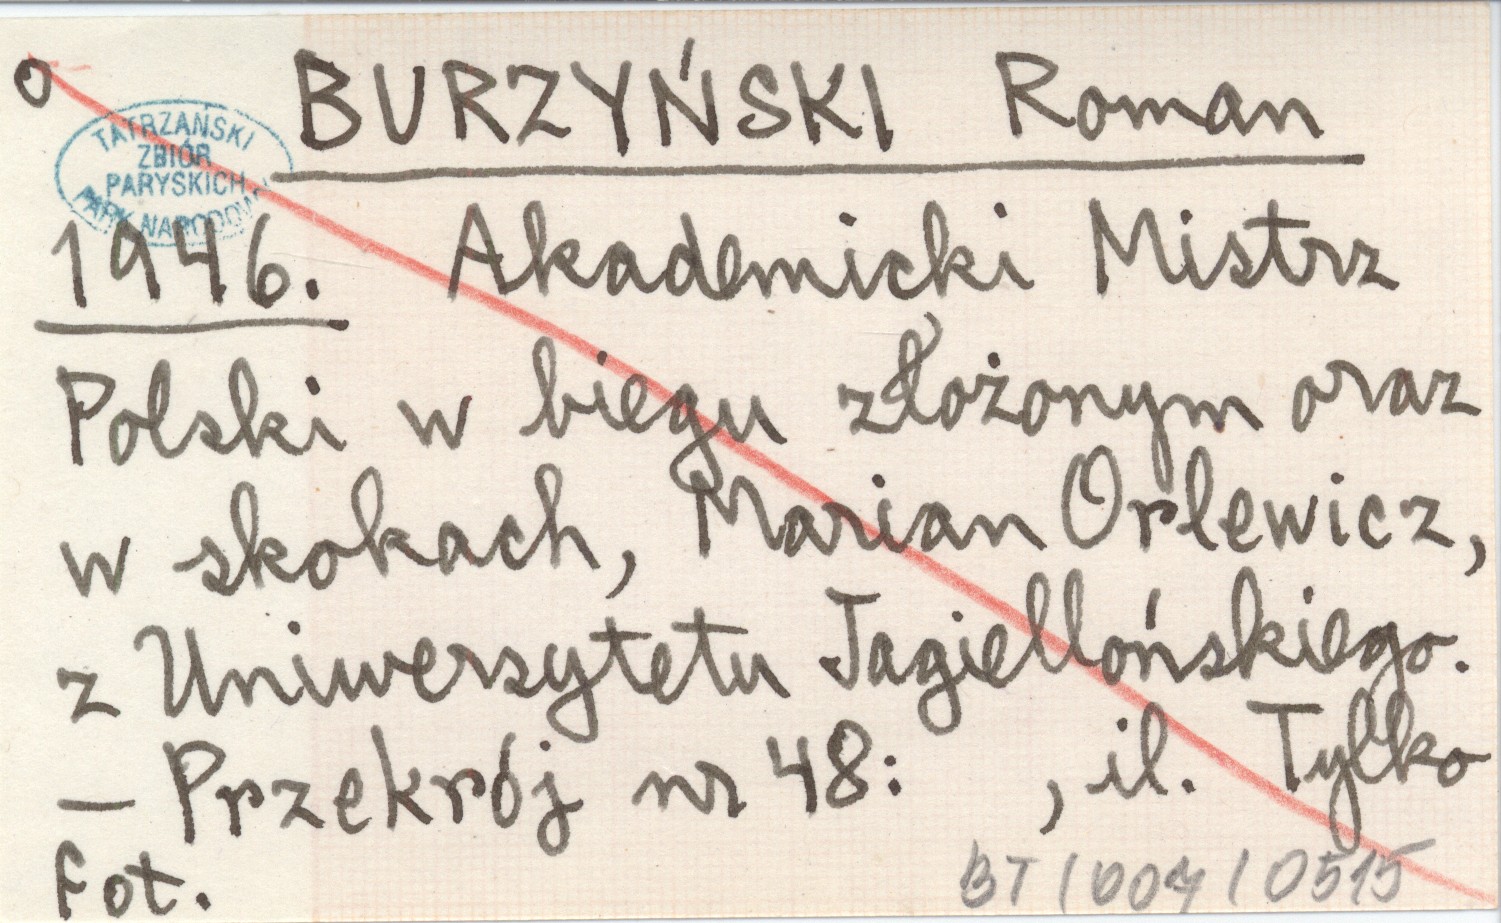 o BURZYŃSKI Roman
TATRZAŃSKI
ZBIÓR
PARYSKICH
PARK NARODOW
1946. Akademicki Mistrz
Polski w biegu złożonym oraz
w skokach, Marian Orlewicz,
z Uniwersytetu Jagiellońskiego.
— Przekrój nr 48: , il. Tylko
fot.
BT/007/0515